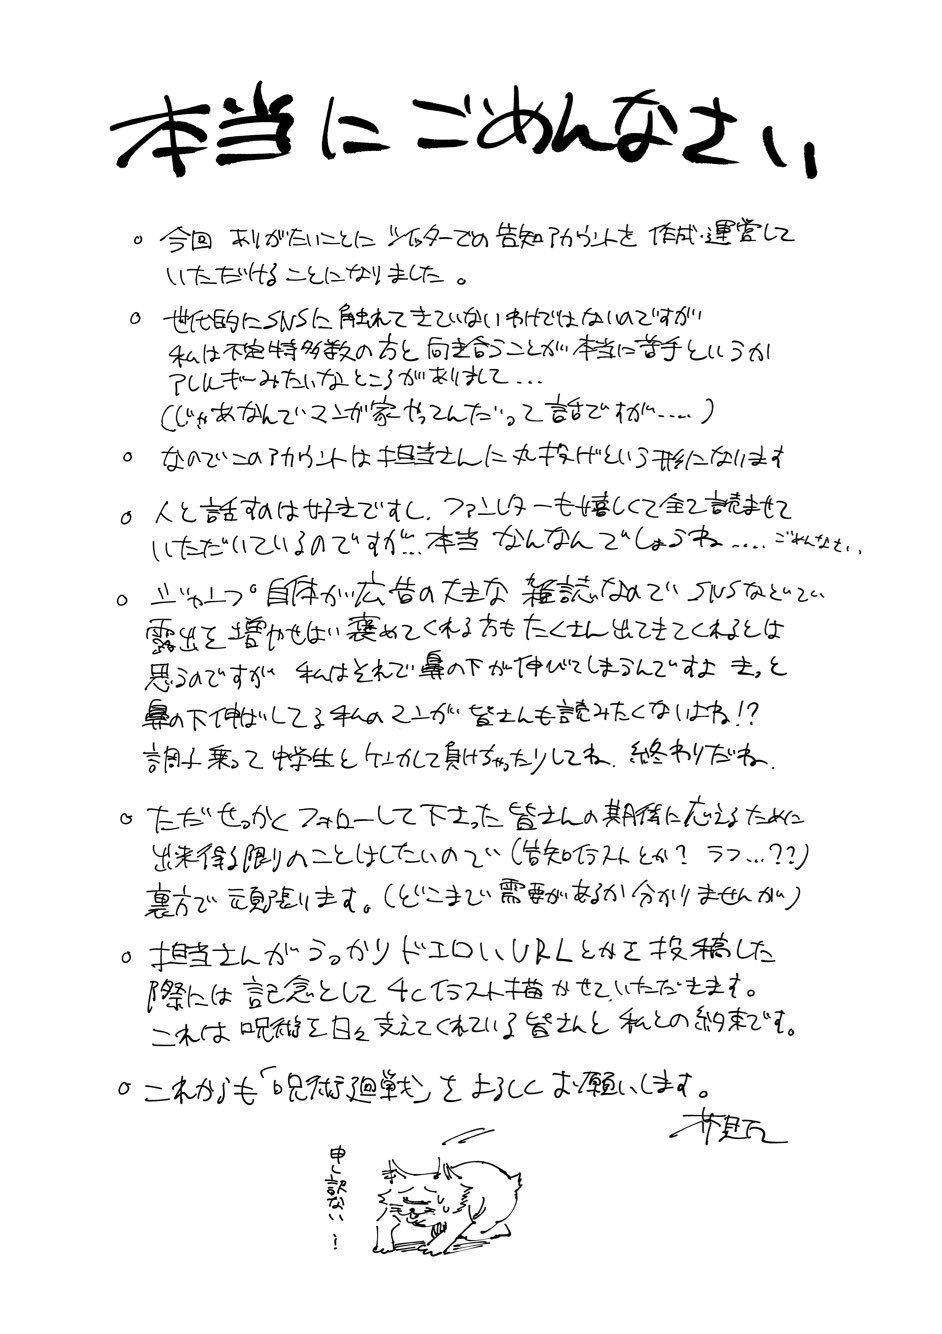 本当にごめんなさい
○ 今回 ありがたいことに ツイッターでの 告知アカウントを 作成・運営して
いただけることになりました。
○ 世代的にSNSに触れてきていないわけではないのですが
私は不特定多数の方と向き合うことが本当に苦手というか
アレルギーみたいなところがありまして...
(じゃあなんでマンガ家やってんだって話ですが.....)
○ なのでこのアカウントは担当さんに丸投げという形になります
○ 人と話すのは好きですし、ファンレターも嬉しくて全て読ませて
いただいているのですが...本当 なんなんでしょうね.... ごめんなさい、
○ ジャンプ自体が広告の大きな 雑誌なのでSNSなどで
露出を増やせばい 褒めてくれる方もたくさん出てきてくれるとは
思うのですが 私はそれで鼻の下が伸びてしまうんですよ きっと
鼻の下伸ばしてる私のマンガ 皆さんも読みたくないよね!?
調子乗って中学生とケンカして負けちゃったりしてね、終わりだね、
○ ただせっかくフォローして下さった皆さんの期待に応えるために
出来得る限りのことはしたいので(告知イラストとか? ラフ...??)
裏方で頑張ります。(どこまで需要があるか分かりませんが)
○ 担当さんがうっかりドエロいURLとかを投稿した
際には記念として4cイラスト描かせていただきます。
これは呪術を日々支えてくれている皆さんと私との約束です。
○ これからも「呪術廻戦」をよろしくお願いします。
芥見下々
申し訳ない!